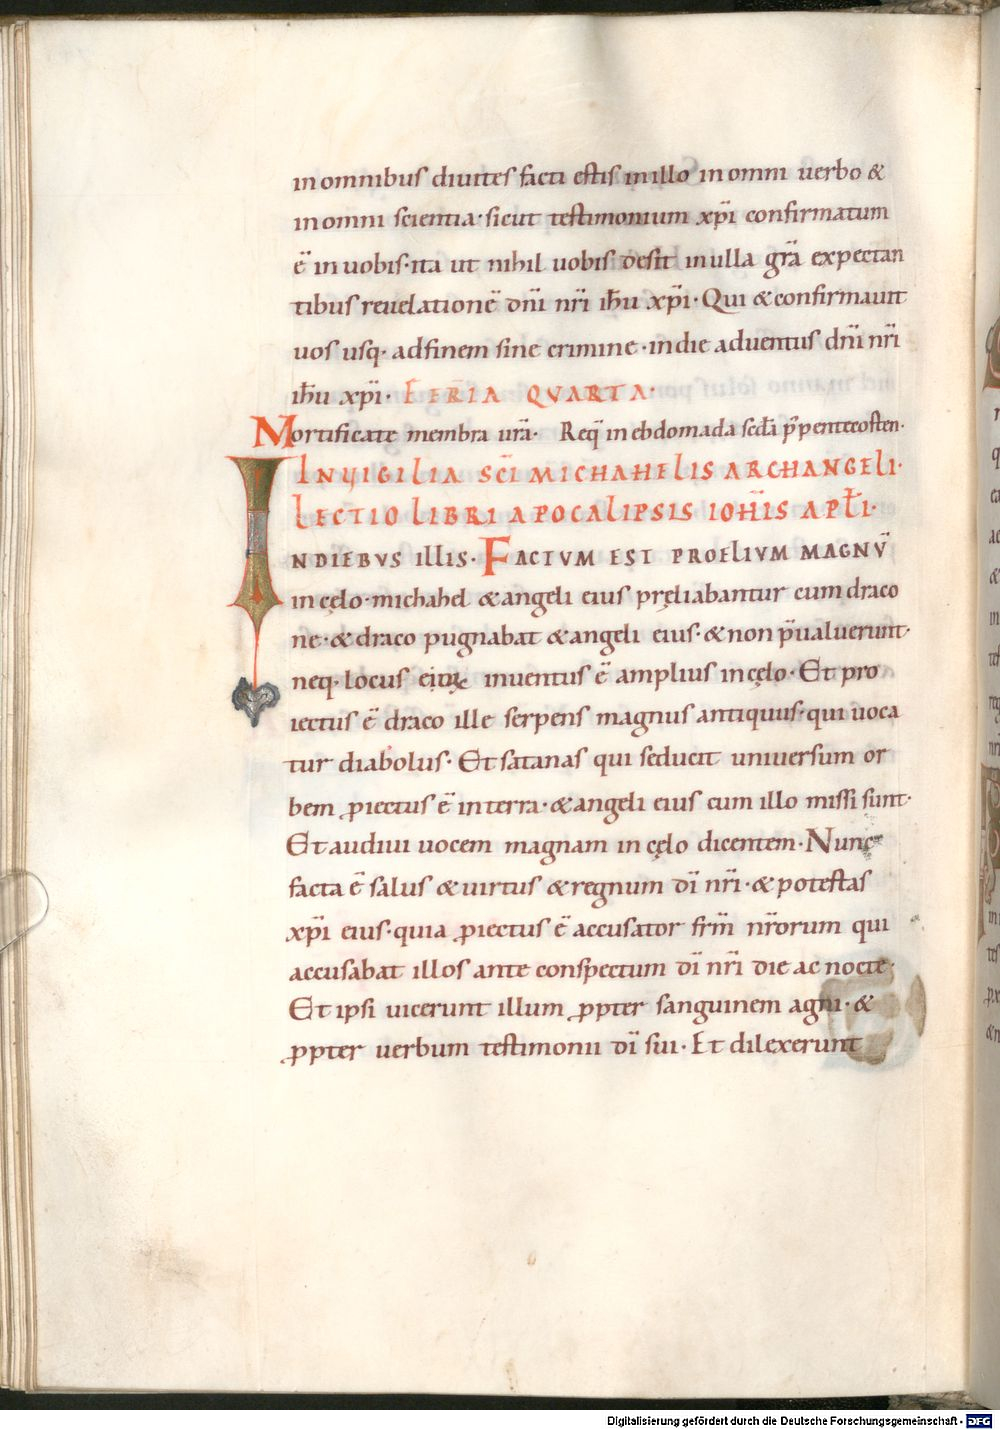 in omnibus diuites facti estis in illo in omni uerbo &
in omni scientia · sicut testimonium xp̄i confirmatum
ē in uobis · ita ut nihil uobis desit in ulla gr̄a expectan
tibus reuelationē dn̄i nr̄i ih̄u xp̄i · Qui & confirmauit
uos usq· ad finem sine crimine · in die aduentus dn̄i nr̄i
ih̄u xp̄i · FERIA QVARTA ·
Mortificate membra ur̄a · Req̄ in ebdomada scd̄a p̄ pentecosten ·
IN VIGILIA SC̄I MICHAHELIS ARCHANGELI ·
LECTIO LIBRI APOCALIPSIS IOH̄IS APL̄I ·
IN DIEBVS ILLIS · FACTVM EST PROELIVM MAGNV̄
in cęlo · michahel & angeli eius pręliabantur cum draco
ne · & draco pugnabat & angeli eius · & non p̄ualuerunt ·
neq· locus inuentus ē amplius in cęlo · Et pro
iectus ē draco ille serpens magnus antiquus · qui uoca
tur diabolus · Et satanas qui seducit uniuersum or
bem ꝓiectus ē in terra · & angeli eius cum illo missi sunt ·
Et audiui uocem magnam in cęlo dicentem · Nunc
facta ē salus & uirtus & regnum dī nr̄i · & potestas
xp̄i eius · quia ꝓiectus ē accusator fr̄m nr̄orum qui
accusabat illos ante conspectum dī nr̄i die ac nocte ·
Et ipsi uicerunt illum ꝓpter sanguinem agni · &
ꝓpter uerbum testimonii dī sui · Et dilexerunt
Digitalisierung gefördert durch die Deutsche Forschungsgemeinschaft - DFG